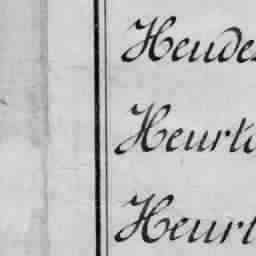 Heudes
Heurt
Heurt